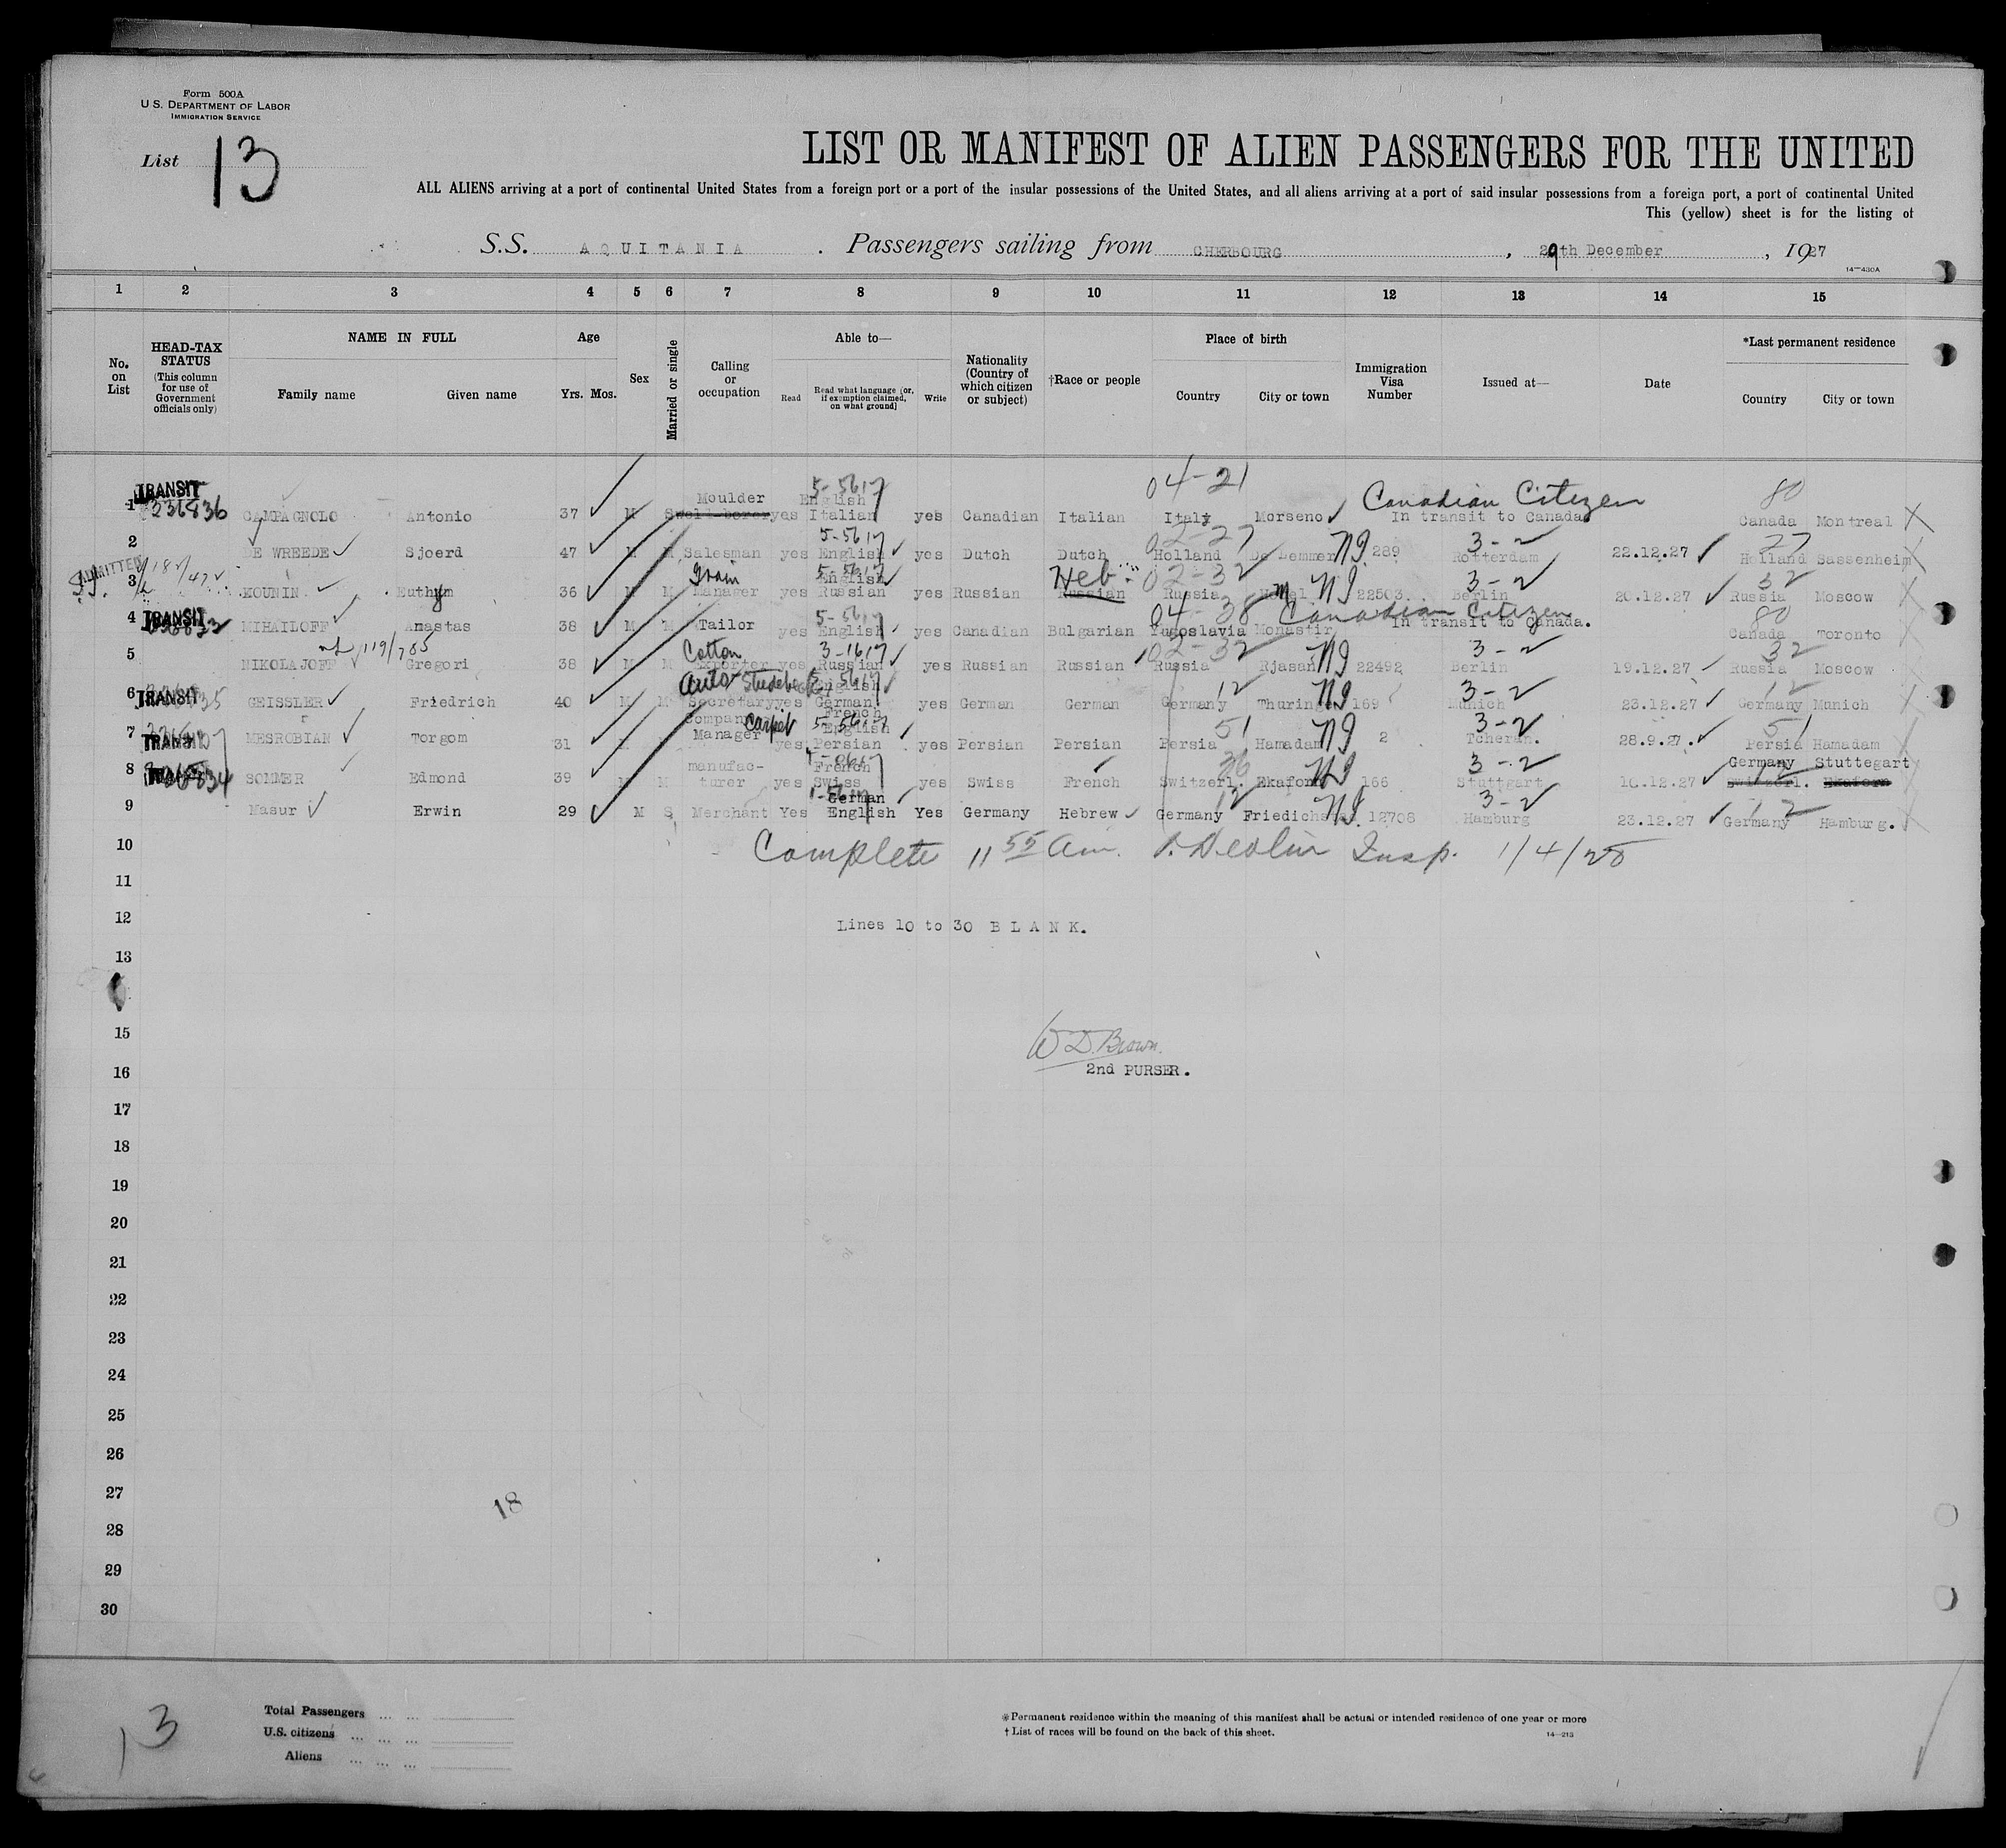 Form 500A
U.S. DEPARTMENT OF LABOR
IMMIGRATION SERVICE
List 13
LIST OR MANIFEST OF ALIEN PASSENGERS FOR THE UNITED
ALL ALIENS arriving at a port of continental United States from a foreign port or a port of the insular possessions of the United States, and all aliens arriving at a port of said insular possessions from a foreign port, a port of continental United
This (yellow) sheet is for the listing of
S.S. AQUITANIA. Passengers sailing from CHERBOURG, 29th December, 1927
14—430A
1 2 3 4 5 6 7 8 9 10 11 12 13 14 15
No. on List
HEAD-TAX STATUS (This column for use of Government officials only)
NAME IN FULL
Family name Given name
Age
Yrs. Mos.
Sex
Married or single
Calling or occupation
Able to—
Read
Read what language [or, if exemption claimed, on what ground]
Write
Nationality (Country of which citizen or subject)
†Race or people
Place of birth
Country City or town
Immigration Visa Number
Issued at—
Date
*Last permanent residence
Country City or town
04-21
TRANSIT Moulder 5-5617 English Canadian Citizen 80
1 236836 CAMPAGNOLO Antonio 37 M S yes Italian yes Canadian Italian Italy Morseno In transit to Canada Canada Montreal X
5-5617 02-27 3-2 27
2 DE WREEDE Sjoerd 47 M M Salesman yes English yes Dutch Dutch Holland De Lemmer NI 289 Rotterdam 22.12.27 Holland Sassenheim X
ADMITTED Grain 5-5617 English Heb. 02-32 3-2 32
3 KOUNIN Euthym 36 M M Manager yes Russian yes Russian Russian Russia NI 22503 Berlin 20.12.27 Russia Moscow X
TRANSIT 5-5617 04-38 Canadian Citizen 80
4 MIHAILOFF Anastas 38 M M Tailor yes English yes Canadian Bulgarian Yugoslavia Monastir In transit to Canada. Canada Toronto X
119/785 Cotton 3-1617 02-32 3-2 32
5 NIKOLAJOFF Gregori 38 M M Exporter yes Russian yes Russian Russian Russia Rjasan NI 22492 Berlin 19.12.27 Russia Moscow X
Auto Studebaker 5-5617 English 12 3-2 12
6 TRANSIT GEISSLER Friedrich 40 M M Secretary yes German yes German German Germany Thuringe NI 169 Munich 23.12.27 Germany Munich X
Company Carpet French 5-5617 English 51 3-2 51
7 TRANSIT MESROBIAN Torgom 31 M Manager yes Persian yes Persian Persian Persia Hamadam NI 2 Teheran. 28.9.27. Persia Hamadam X
manufac- French 36 3-2 Germany Stuttegart
8 SOMMER Edmond 39 M M turer yes Swiss yes Swiss French Switzerl. Ekaform NI 166 Stuttgart 16.12.27 Switzerl. Ekaform
German 12 3-2 12
9 Masur Erwin 29 M S Merchant Yes English Yes Germany Hebrew Germany NI 12708 Hamburg 23.12.27 Germany Hamburg. X
10 Complete 11 55 am. Insp. 1/4/28
11
12 Lines 10 to 30 BLANK.
13
15
W D. Brown.
16 2nd PURSER.
17
18
19
20
21
22
23
24
25
26
27
18
28
29
30
13
Total Passengers
U.S. citizens
Aliens
*Permanent residence within the meaning of this manifest shall be actual or intended residence of one year or more
† List of races will be found on the back of this sheet.
14—213